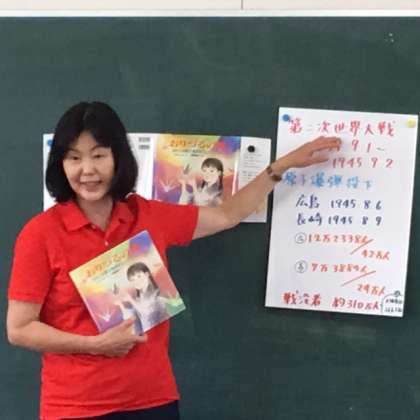 おりづるの
おりづるの
第二次世界大戦
9 1〜
1945 9 2
原子爆弾投下
広島 1945 8.6
長崎 1945 8 9
12万2338人
42万人
7万3884人
24万人
戦没者 約310万人